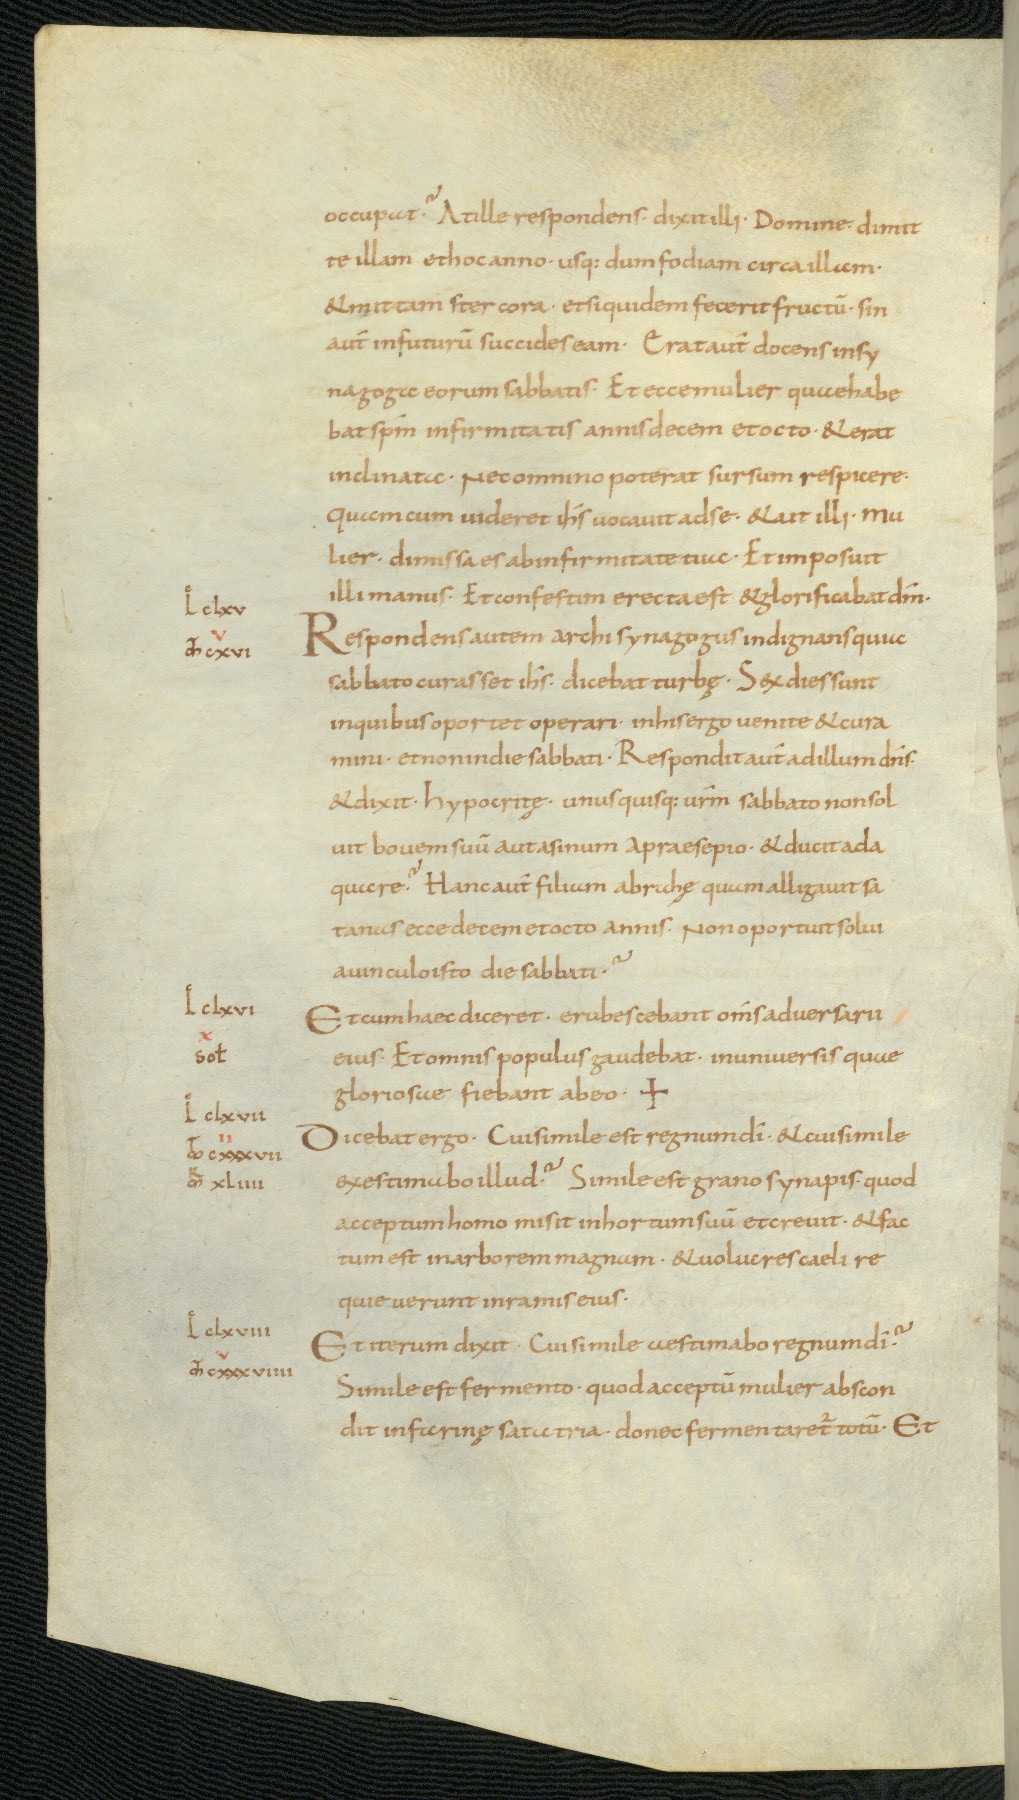 occupat· At ille respondens· dixit illi· Domine· dimit
te illam et hoc anno· usq: dum fodiam circa illam·
& mittam stercora· et siquidem fecerit fructū· sin
aut̄ in futurū succides eam· Erat aut̄ docens in sy
nagoga eorum sabbatis· Et ecce mulier quae habe
bat sp̄m infirmitatis annis decem et octo· & erat
inclinata· Nec omnino poterat sursum respicere·
Quam cum uideret ih̄s uocauit ad se· & ait illi· Mu
lier· dimissa es ab infirmitate tua· Et imposuit
illi manus· Et confestim erecta est & glorificabat dm̄·
L clxv
Respondens autem archisynagogus indignans quia
v
m cxvi
sabbato curasset ih̄s· dicebat turbę· Sex dies sunt
in quibus oportet operari· in his ergo uenite & cura
mini· et non in die sabbati· Respondit aut̄ ad illum dn̄s·
& dixit· hypocritę· unusquisq: urm̄ sabbato non sol
uit bouem suū aut asinum a praesepio· & ducit ada
quare· Hanc aut̄ filiam abrahę quam alligauit sa
tanas ecce decem et octo annis· Non oportuit solui
a uinculo isto die sabbati·
L clxvi
Et cum haec diceret· erubescebant om̄s aduersarii
x
sol
eius· Et omnis populus gaudebat· in uniuersis quae
gloriosae fiebant ab eo· +
L clxvii
Dicebat ergo· Cui simile est regnum dī· & cui simile
ii
m cxxxvii
exestimabo illud· Simile est grano synapis· quod
m xliiii
acceptum homo misit in hortum suū et creuit· & fac
tum est in arborem magnam· & uolucres caeli re
quieuerunt in ramis eius·
L clxviii
Et iterum dixit· Cui simile aestimabo regnum dī·
v
m cxxxviiii
Simile est fermento· quod acceptū mulier abscon
dit in farinę sata tria· donec fermentaret̄ totū· Et